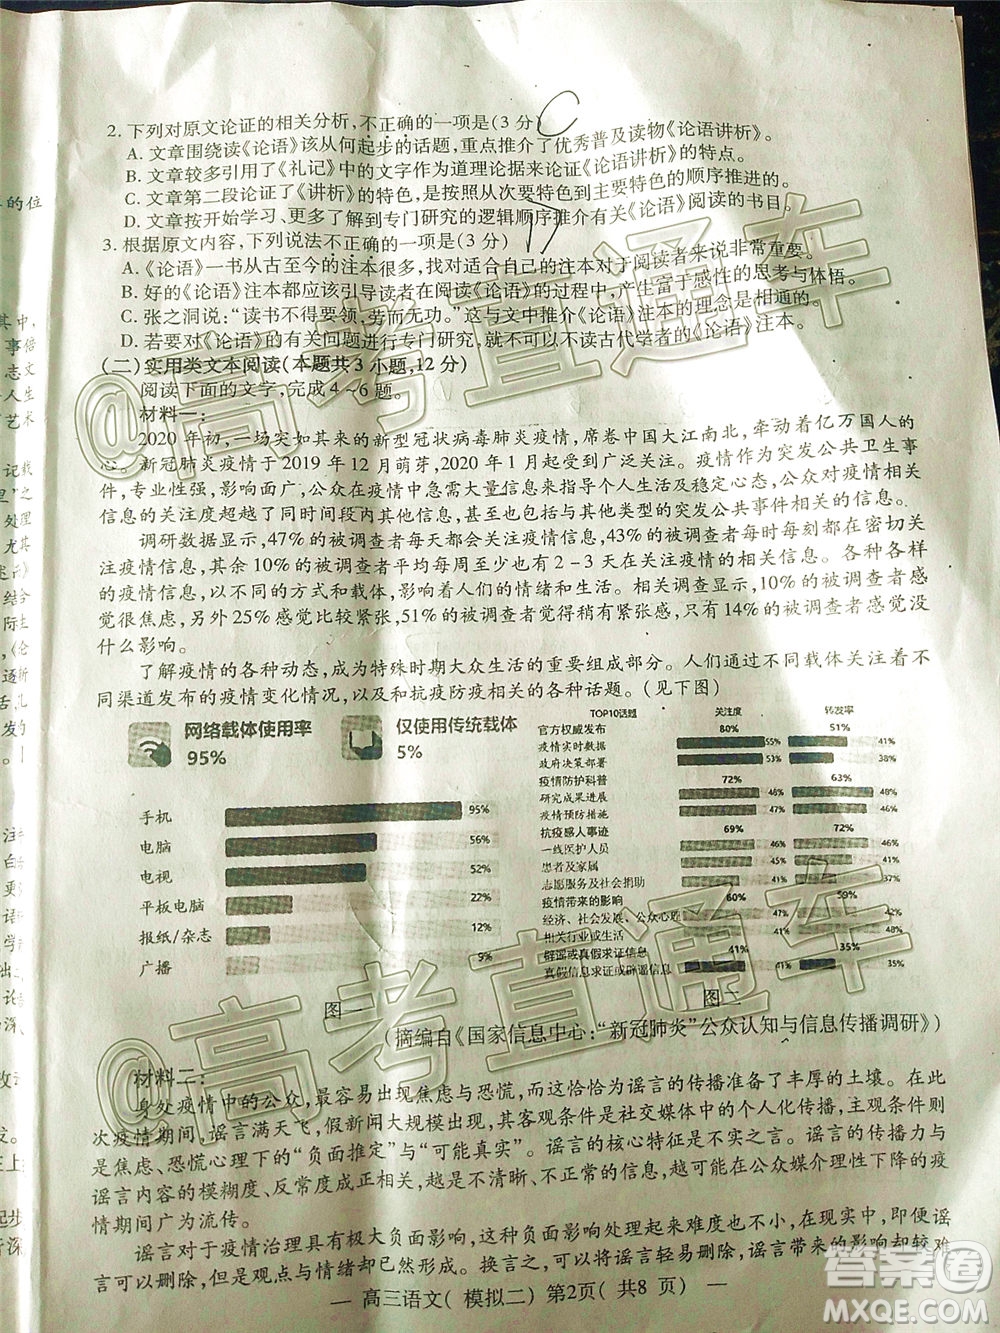 2. 下列对原文论证的相关分析,不正确的一项是(3分)
A. 文章围绕读《论语》该从何起步的话题,重点推介了优秀普及读物《论语讲析》。
B. 文章较多引用了《礼记》中的文字作为道理论据来论证《论语讲析》的特点。
C. 文章第二段论证了《讲析》的特色,是从次要特色到主要特色的顺序推进的。
D. 文章按开始学习、更多了解到专门研究的逻辑顺序推介有关《论语》阅读的书目。
3. 根据原文内容,下列说法不正确的一项是(3分)
A.《论语》一书从古至今的注本很多,找到适合自己的注本对于阅读者来说非常重要。
B. 好的《论语》注本都应该引导读者在阅读《论语》的过程中,产生富于感性的思考与体悟。
C. 张之洞说:“读书不得要领,劳而无功。”这与文中推介《论语》注本的理念是相通的。
D. 若要对《论语》的有关问题进行研究,可以不读古代学者的《论语》注本。
(二)实用类文本阅读(本题共3小题,12分)
阅读下面的文字,完成4~6题。
材料一:
2020年初,一场突如其来的新型冠状病毒肺炎疫情,席卷中国大江南北,牵动着亿万国人的
心。新冠肺炎疫情于2019年12月萌芽,2020年1月起受到广泛关注。疫情作为突发公共卫生事
件,专业性强,影响面广,公众在疫情中急需大量信息来指导个人生活及稳定心态,公众对疫情
信息的关注度超越了同时间段内其他信息,甚至超越了与其他类型的突发公共事件相关的信息。
调研数据显示,47%的被调查者每天都会关注疫情信息,43%的被调查者每时每刻都在密切关
注疫情信息,有超过90%的被调查者平均每周至少也有2-3天在关注疫情的相关信息。各种各样
的疫情信息,以不同的方式和载体,影响着人们的情绪和生活。相关调查显示,10%的被调查者感
觉很焦虑,另外25%感觉比较紧张,51%的被调查者觉得稍有紧张感,只有14%的被调查者觉得没
什么影响。
了解疫情的各种动态,成为特殊时期大众生活的重要组成部分。人们通过不同载体关注着不
同渠道发布的疫情变化情况,以及和抗疫防疫相关的各种话题。(见下图)
网络载体使用率
95%
仅使用传统载体
5%
手机 95%
电脑 56%
电视 52%
平板电脑 22%
报纸/杂志 12%
广播 9%
图一
TOP10话题 关注度 转发率
官方权威发布 80% 51%
疫情实时数据 55% 41%
政府决策部署 53% 38%
疫情防护科普 72% 63%
研究成果进展 48% 48%
疫情预防措施 47% 46%
抗疫感人事迹 69% 72%
一线医护人员 46% 46%
患者及家属
志愿服务及社会捐助 41% 41%
疫情带来的影响 60% 59%
经济、社会发展、公众心理
相关行业或生活
辟谣或真假求证 41% 35%
真假信息求证或辟谣信息 41% 35%
图二
(摘编自《国家信息中心:“新冠肺炎”公众认知与信息传播调研》)
材料二:
身处疫情中的公众,最容易出现焦虑与恐慌,而这恰恰为谣言的传播准备了丰厚的土壤。在此
次疫情期间,谣言满天飞,假新闻大规模出现,其客观条件是社交媒体中的个人化传播,主观条件则
是焦虑、恐慌心理下的“负面推定”与“可能真实”。谣言的核心特征是不实之言。谣言的传播力与
谣言内容的模糊度、反常度成正相关,越是不清晰、不正常的信息,越可能在公众媒介理性下降的疫
情期间广为流传。
谣言对于疫情治理具有极大负面影响,这种负面影响处理起来难度也不小,在现实中,即便谣
言可以删除,但是观点与情绪却已然形成。换言之,可以将谣言轻易删除,谣言带来的影响却较难
— 高三语文( 模拟二) 第2页( 共8 页) —
@高考直通车
@高考直通车
答案圈
MXQE.COM